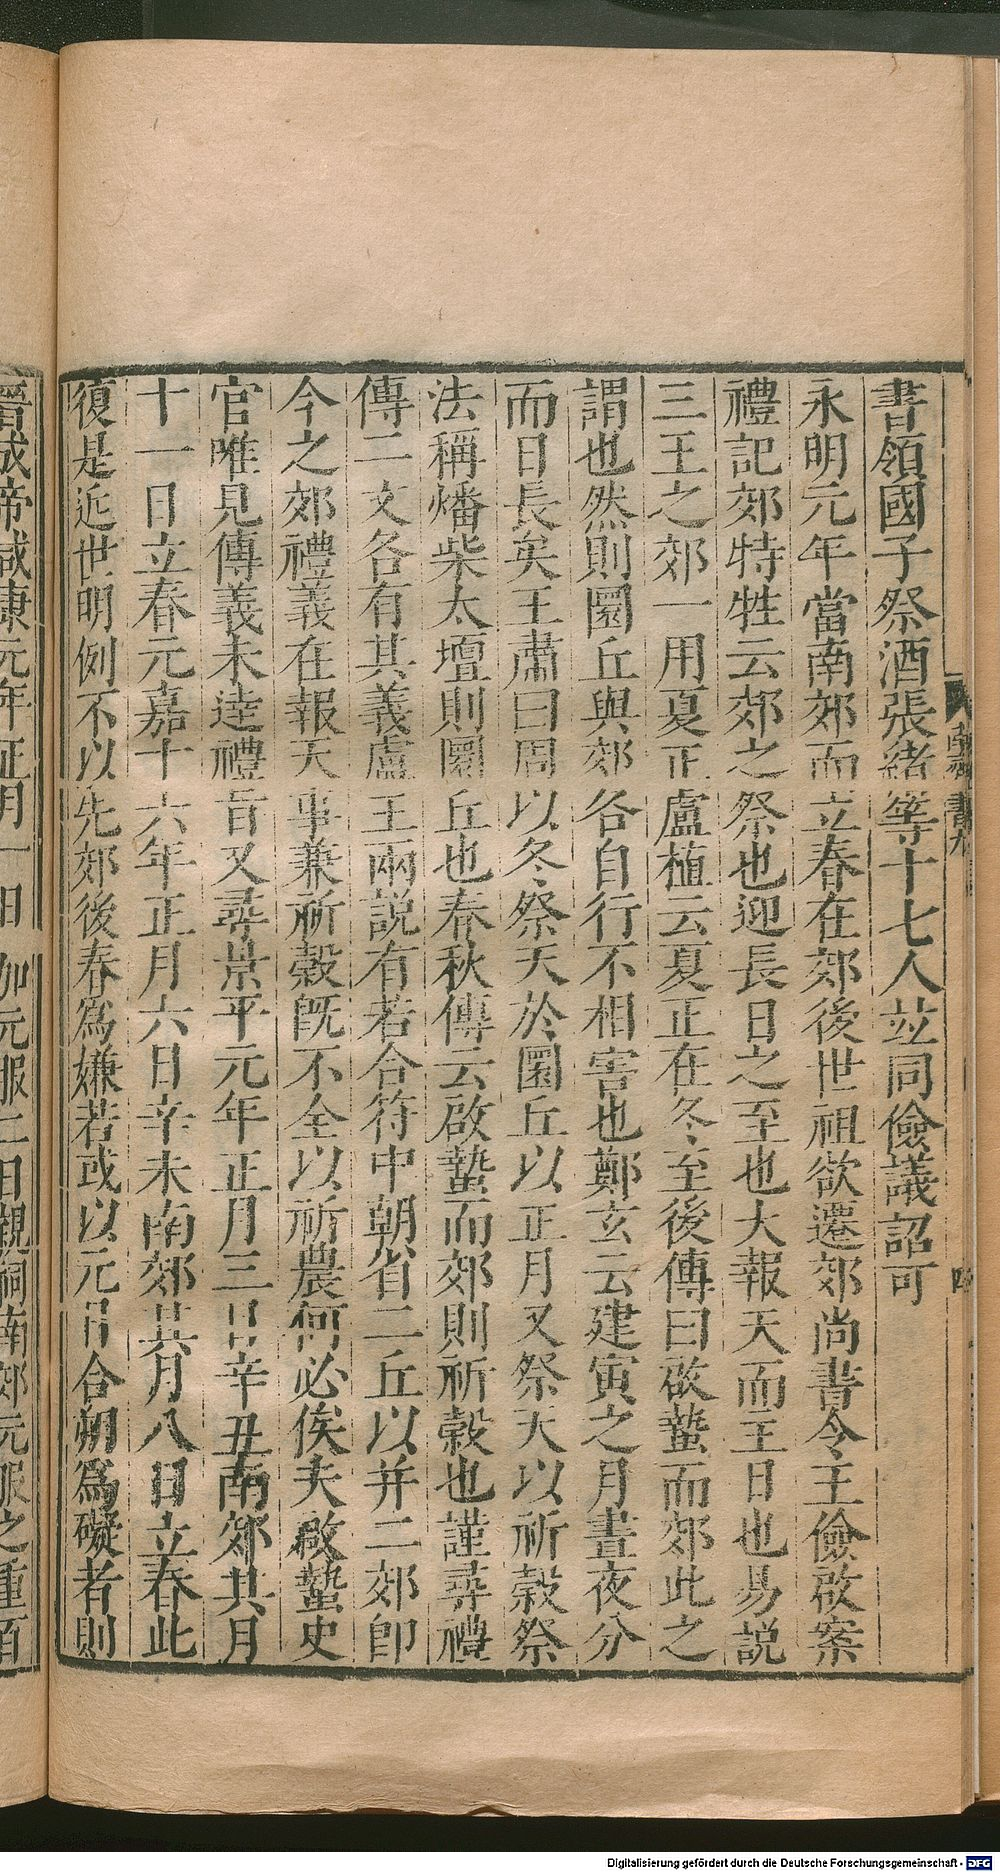 書領國子祭酒張緒等十七人竝同儉議詔可
永明元年當南郊而立春在郊後世祖欲遷郊尚書令王儉啟案
禮記郊特牲云郊之祭也迎長日之至也大報天而主日也易説
三王之郊一用夏正盧植云夏正在冬至後傳曰啟蟄而郊此之
謂也然則圜丘與郊各自行不相害也鄭玄云建寅之月晝夜分
而日長矣王肅曰周以冬祭天於圜丘以正月又祭天以祈穀祭
法稱燔柴太壇則圜丘也春秋傳云啟蟄而郊則祈穀也謹尋禮
傳二文各有其義盧王兩説有若合符中朝省二丘以并二郊即
今之郊禮義在報天事兼祈穀既不全以祈農何必俟夫啟蟄史
官唯見傳義未達禮旨又尋景平元年正月三日辛丑南郊其月
十一日立春元嘉十六年正月六日辛未南郊其月八日立春此
復是近世明例不以先郊後春爲嫌若或以元日合朔爲礙者則
晉成帝咸康元年正月一日加元服二日親祠南郊元服之重百
南齊書九
四
Digitalisierung gefördert durch die Deutsche Forschungsgemeinschaft - DFG